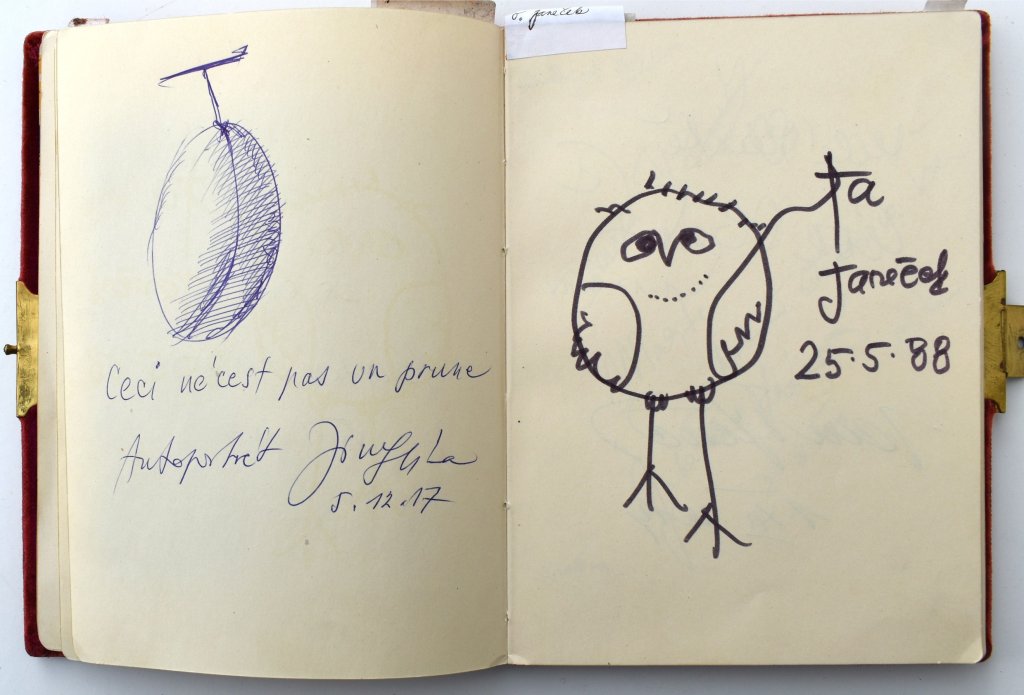 Ceci ne'cest pas un prune
Autoportrét
5.12.17
J. Janeček
Ja
Janeček
25.5.88